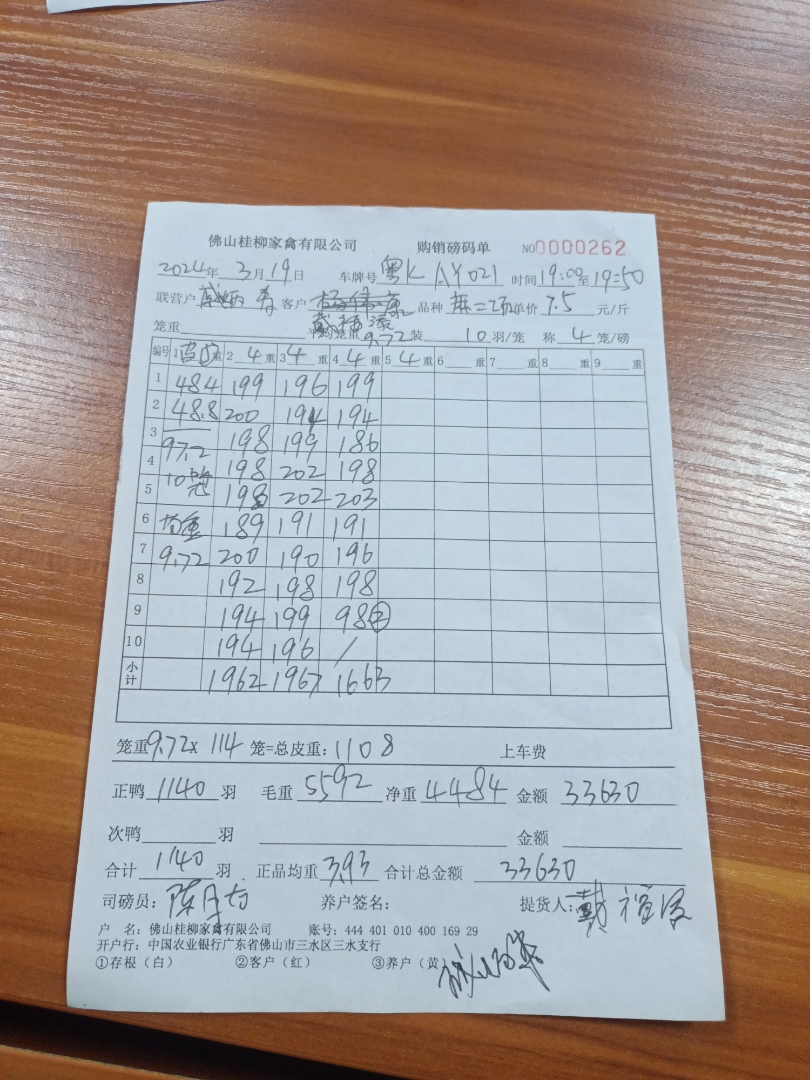 佛山桂柳家禽有限公司 购销磅码单 NO0000262
2024年 3月19日 车牌号 粤K AY021 时间19:00至19:50
联营户 客户 品种 单价 7.5 元/斤
笼重 平均笼重 9.72 装 10 羽/笼 称 4 笼/磅
编号 1 皮 重 2 4 重 3 4 重 4 4 重 5 4 重 6 重 7 重 8 重 9 重
1 48.4 199 196 199
2 48.8 200 194 194
3 97.2 198 199 186
4 10 198 202 198
5 198 202 203
6 均重 189 191 191
7 9.72 200 190 196
8 192 198 198
9 194 199 98②
10 194 196 /
小计 1962 1967 1663
笼重9.72x 114 笼=总皮重: 1108 上车费
正鸭 1140 羽 毛重 5592 净重 4484 金额 33630
次鸭 羽 金额
合计 1140 羽. 正品均重 3.93 合计总金额 33630
司磅员: 陈 养户签名: 提货人: 戴
户 名: 佛山桂柳家禽有限公司 账号: 444 401 010 400 169 29
开户行: 中国农业银行广东省佛山市三水区三水支行
①存根（白） ②客户（红） ③养户（黄